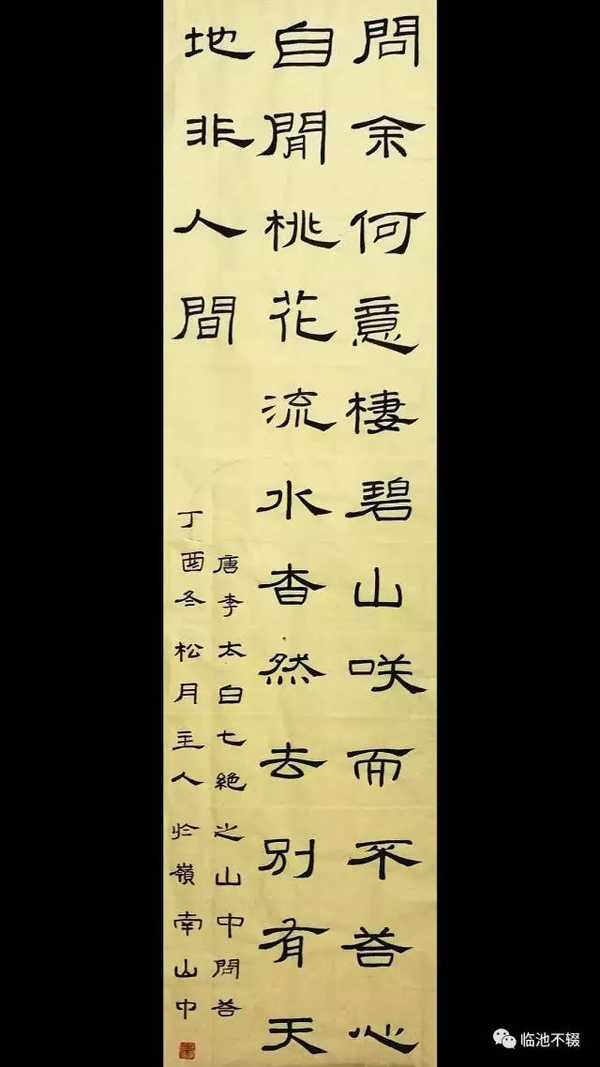 問余何意棲碧山咲而不荅心
自閒桃花流水杳然去別有天
地非人間
唐李太白七絶之山中問荅
丁酉冬松月主人於嶺南山中
临池不辍